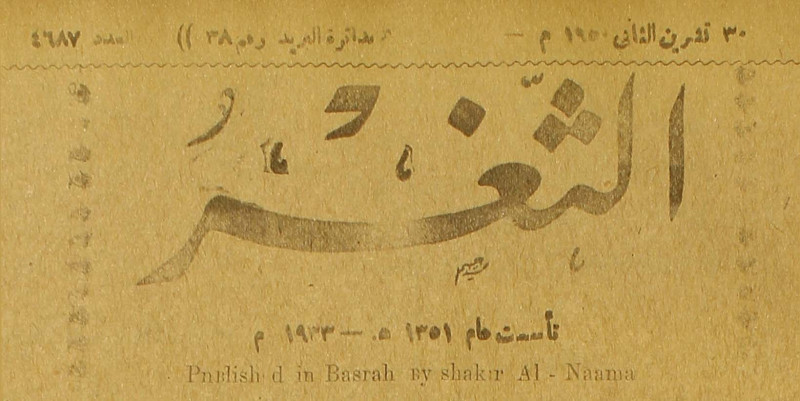 ٣٠ تشرين الثاني ١٩٥٠ م — صندوق دائرة البريد رقم ٣٨ )) العدد ٤٦٨٧
الثَّغْرُ
تأسست عام ١٣٥١ ه. — ١٩٣٣ م
Published in Basrah By shakir Al - Naama